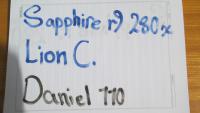 Sapphire r9 280x
Lion C.
Daniel 110